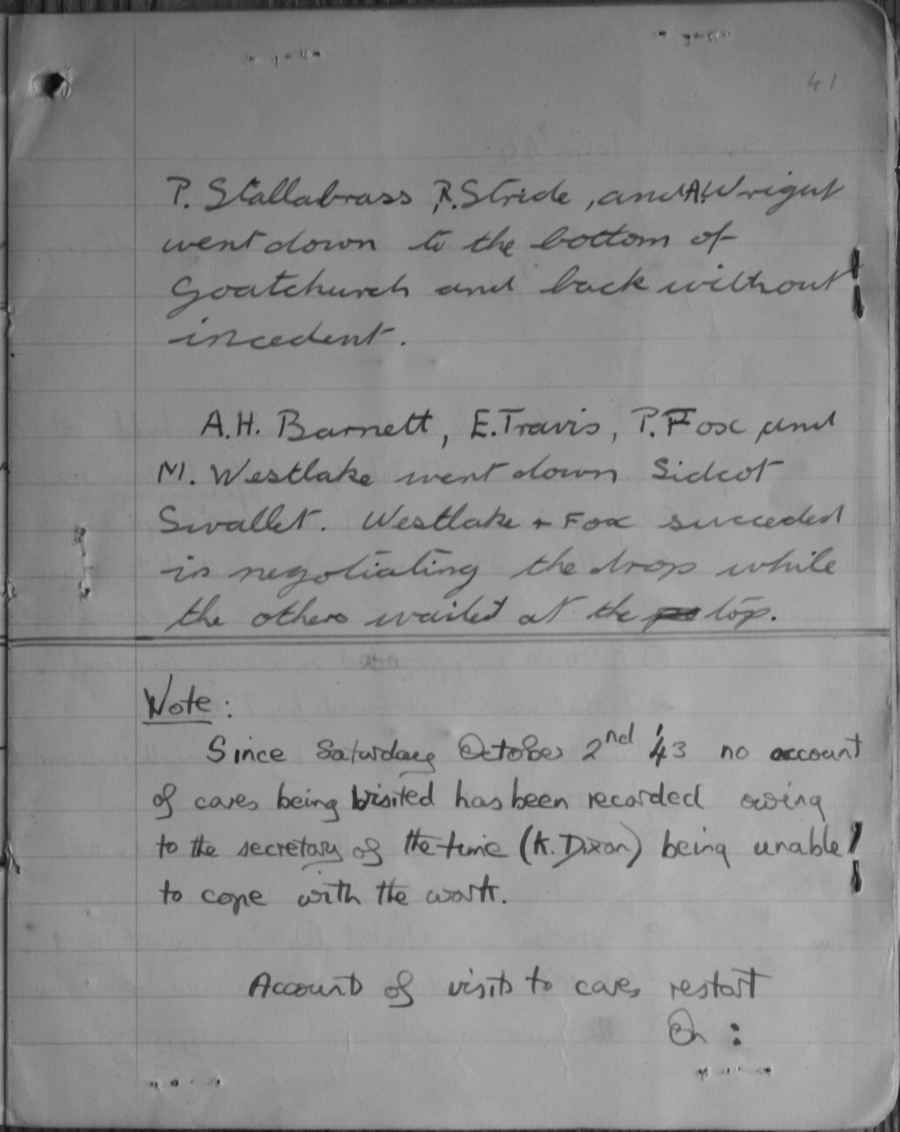 41
P. Stallabrass, R. Stride, and A. Wright
went down to the bottom of
Goatchurch and back without
incedent.
A.H. Barnett, E. Travis, P. Fox and
M. Westlake went down Sidcot
Swallet. Westlake + Fox succeded
in negotiating the drop while
the others waited at the top.
Note:
Since Saturday October 2nd '43 no account
of caves being visited has been recorded owing
to the secretary of the time (K. Dixon) being unable
to cope with the work.
Account of visits to caves restart
On :